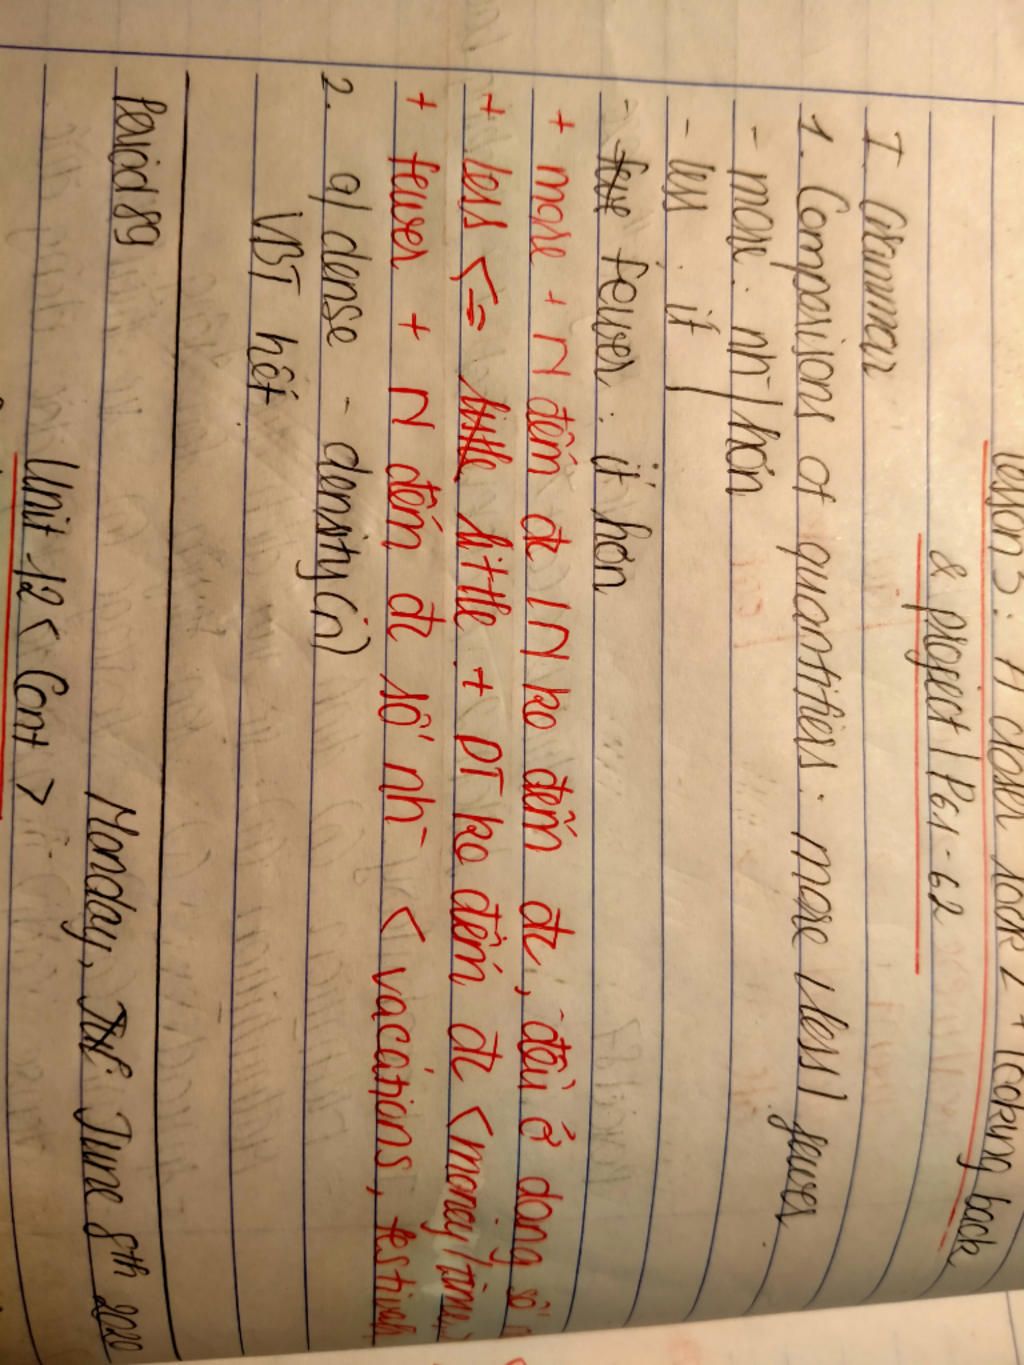 Lesson 3: A closer look 2 + looking back
& project | P61-62
I. Grammar
1. Comparisons of quantifiers: more / less / fewer
- more: nh~ / hơn
- less: ít
- fewer: ít hơn
+ more + N đếm đc / N ko đếm đc, đều ở dạng số
+ less <= little little + DT ko đếm đc < money / time,
+ fewer + N đếm đc số nh~ < vacations, festivals
2. a/ dense - density (n)
VBT hết
Monday, June 8th 2020
Period 89
Unit 12 < Cont >